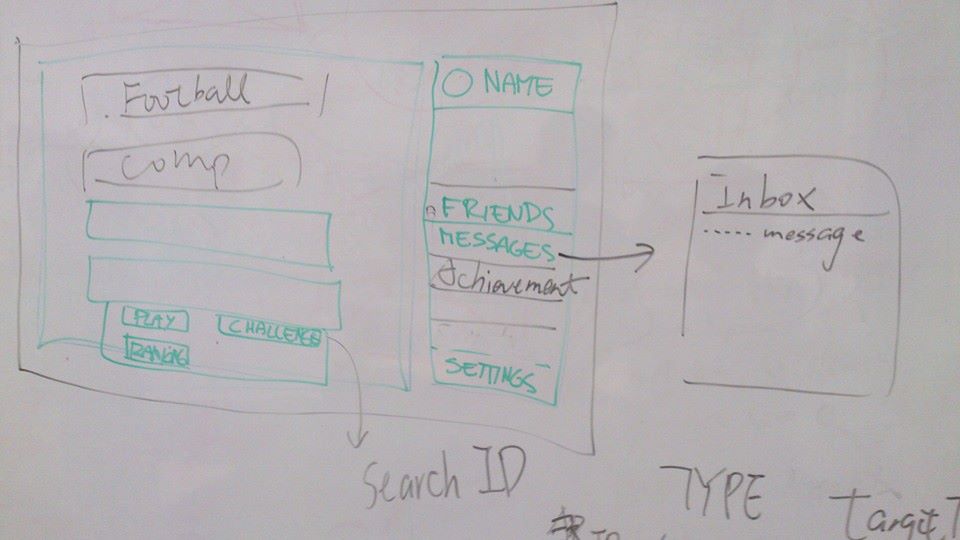 Football
Comp
PLAY
CHALLENGE
RANKING
NAME
FRIENDS
MESSAGES
Achievement
SETTINGS
Inbox
..... message
Search ID
TYPE